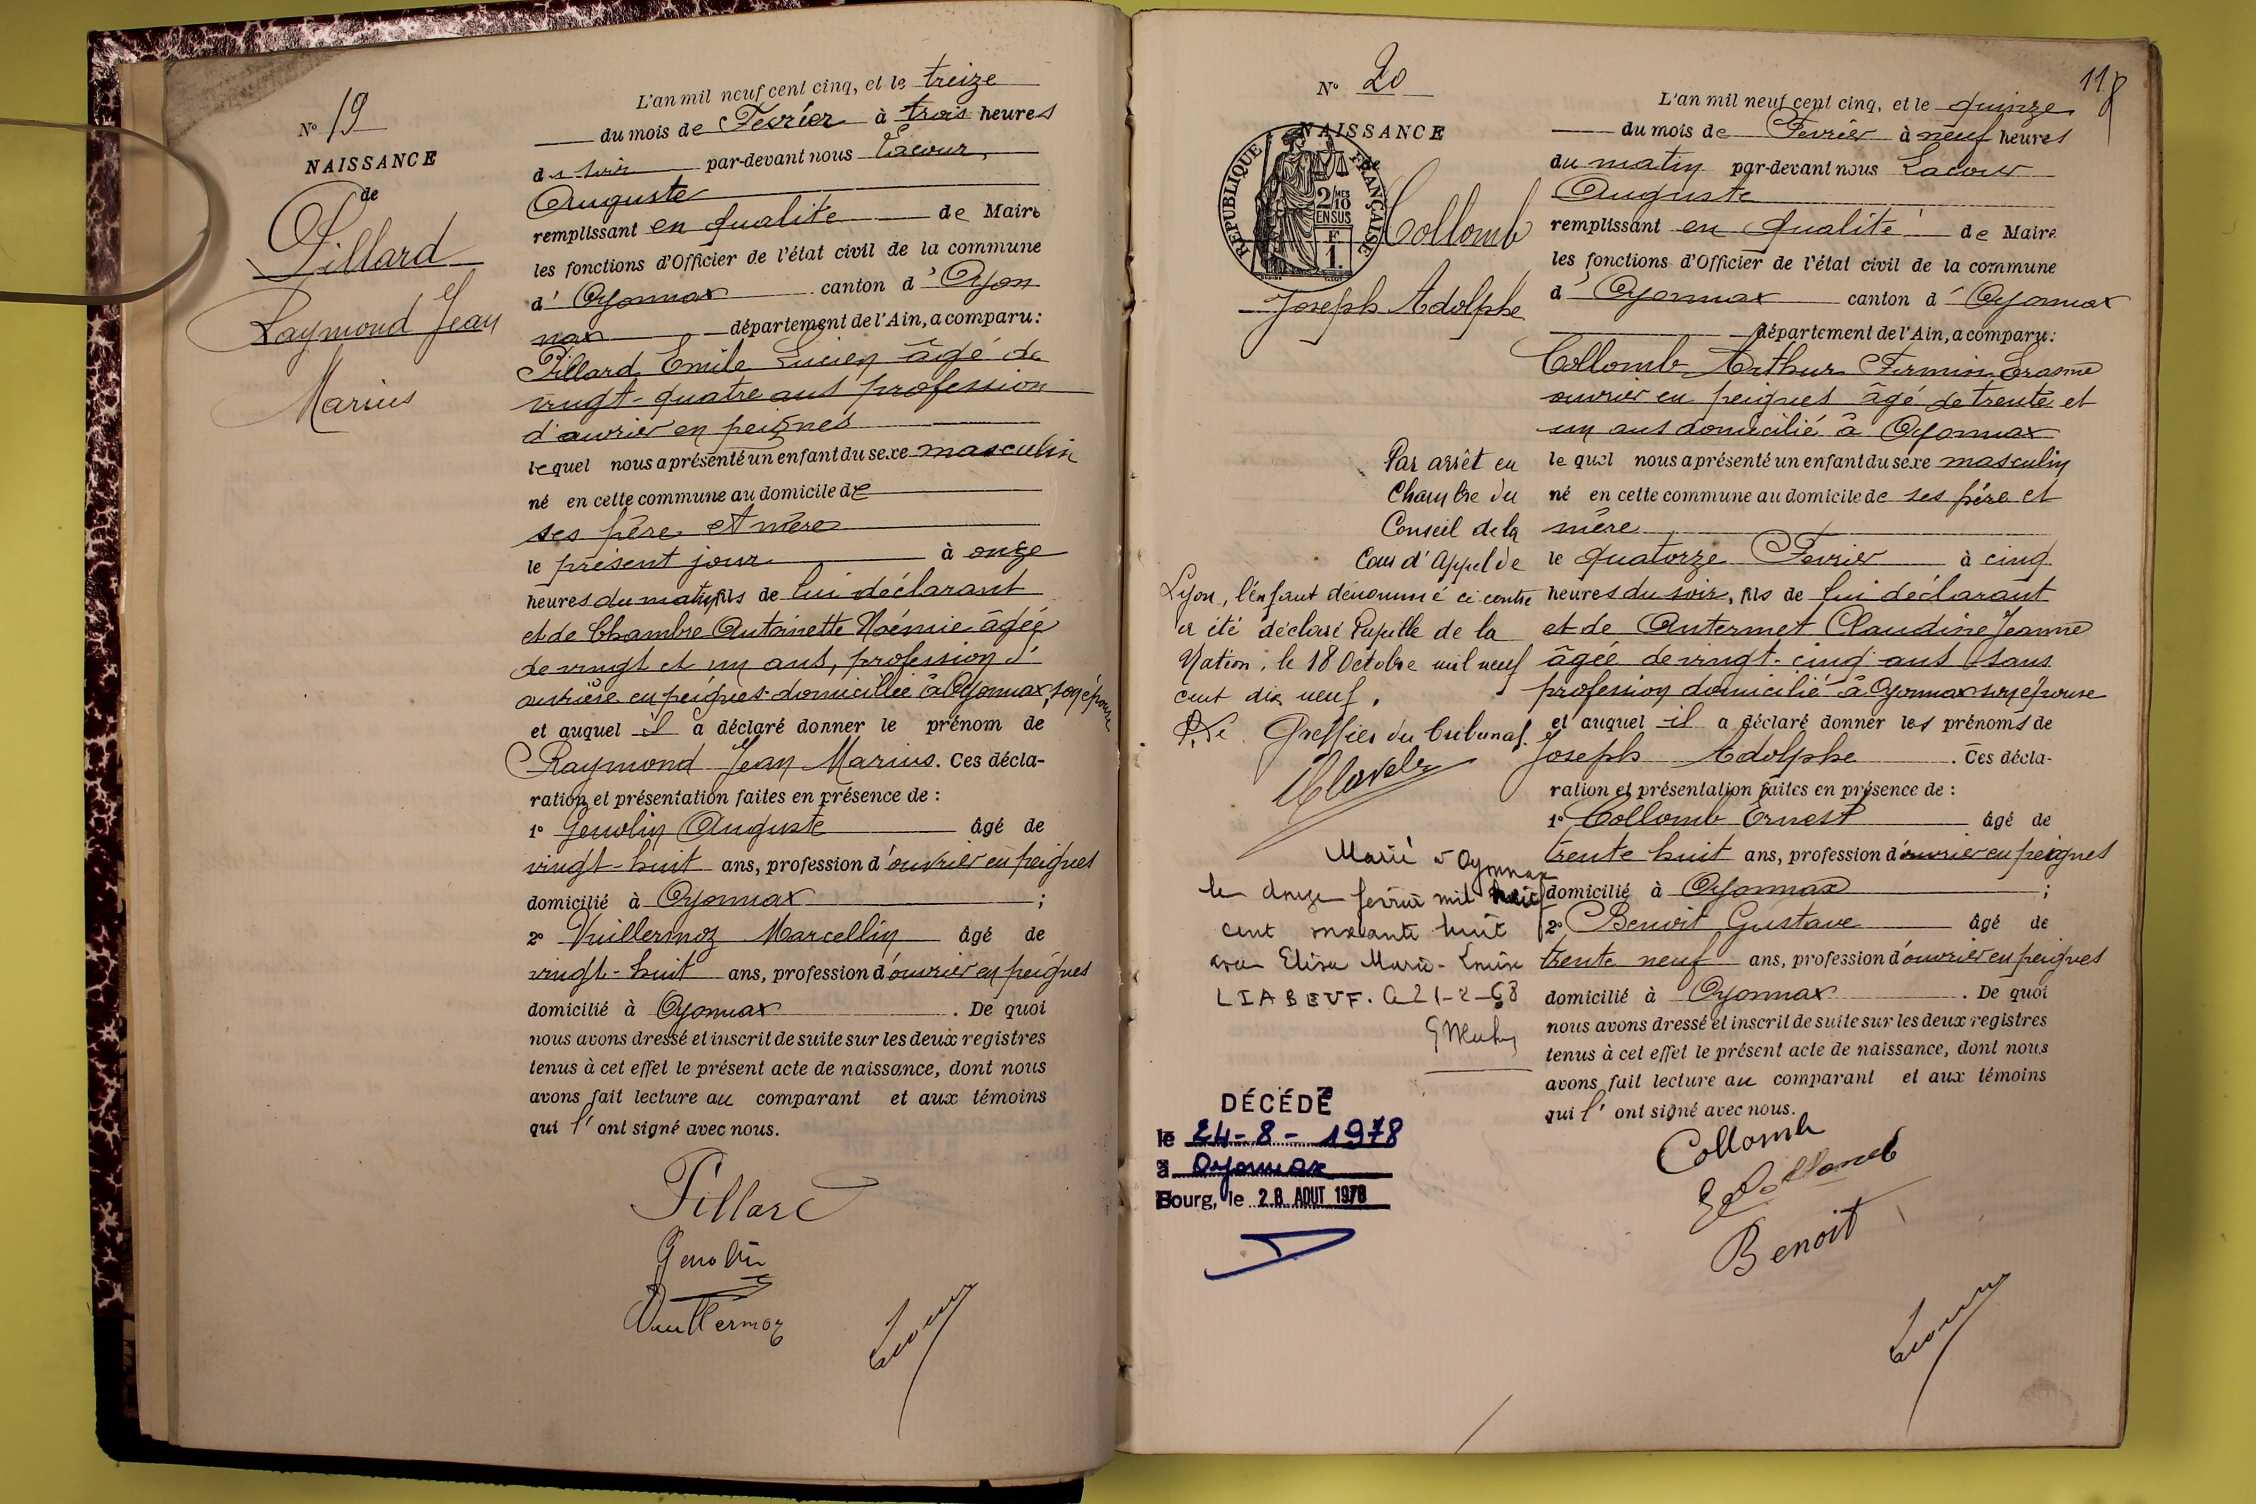 N° 19
NAISSANCE
de
Pillard
Raymond Jean
Marius
L'an mil neuf cent cinq, et le treize
du mois de Fevrier à trois heures
du soir par-devant nous Lacour
Auguste
remplissant en qualité de Maire
les fonctions d'Officier de l'état civil de la commune
d' Oyonnax canton d' Oyon
nax département de l'Ain, a comparu:
Pillard Emile Lucien âgé de
vingt-quatre ans profession
d'ouvrier en peignes
le quel nous a présenté un enfant du sexe masculin
né en cette commune au domicile de
ses père et mère
le présent jour à onze
heures du matin, fils de lui déclarant
et de Chambre Antoinette Noémie âgée
de vingt et un ans, profession d'
ouvrière en peignes domiciliée à Oyonnax, son épouse
et auquel il a déclaré donner le prénom de
Raymond Jean Marius. Ces décla-
ration et présentation faites en présence de :
1° Genolin Auguste âgé de
vingt-huit ans, profession d'ouvrier en peignes
domicilié à Oyonnax ;
2° Vuillermoz Marcellin âgé de
vingt-huit ans, profession d'ouvrier en peignes
domicilié à Oyonnax . De quoi
nous avons dressé et inscrit de suite sur les deux registres
tenus à cet effet le présent acte de naissance, dont nous
avons fait lecture au comparant et aux témoins
qui l' ont signé avec nous.
Pillard
Genolin
Vuillermoz
Lacour
118
N° 20
NAISSANCE
de
REPUBLIQUE FRANÇAISE
2/10 MES
EN SUS
F.
1.
Collomb
Joseph Adolphe
Par arrêt en
Chambre du
Conseil de la
Cour d'Appel de
Lyon, l'enfant dénommé ci contre
a été déclaré Pupille de la
Nation, le 18 Octobre mil neuf
cent dix neuf.
Le Greffier du tribunal.
Marié à Oyonnax
le douze février mil neuf
cent soixante huit
avec Elisa Marie-Louise
LIABEUF. a 21-2-68
DÉCÉDÉ
le 24-8-1978
à Oyonnax
Bourg, le 28 AOUT 1978
L'an mil neuf cent cinq, et le quinze
du mois de Fevrier à neuf heures
du matin par-devant nous Lacour
Auguste
remplissant en qualité de Maire
les fonctions d'Officier de l'état civil de la commune
d' Oyonnax canton d' Oyonnax
département de l'Ain, a comparu:
Collomb Arthur Firmin Erasme
ouvrier en peignes âgé de trente et
un ans domicilié à Oyonnax
le quel nous a présenté un enfant du sexe masculin
né en cette commune au domicile de ses père et
mère
le quatorze Fevrier à cinq
heures du soir, fils de lui déclarant
et de Antermet Claudine Jeanne
âgée de vingt-cinq ans sans
profession domicilié à Oyonnax son épouse
et auquel il a déclaré donner les prénoms de
Joseph Adolphe . Ces décla-
ration et présentation faites en présence de :
1° Collomb Ernest âgé de
trente huit ans, profession d'ouvrier en peignes
domicilié à Oyonnax ;
2° Benoit Gustave âgé de
trente neuf ans, profession d'ouvrier en peignes
domicilié à Oyonnax . De quoi
nous avons dressé et inscrit de suite sur les deux registres
tenus à cet effet le présent acte de naissance, dont nous
avons fait lecture au comparant et aux témoins
qui l' ont signé avec nous.
Collomb
E Collomb
Benoit
Lacour